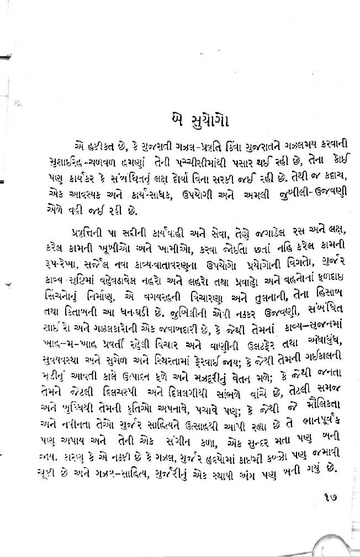 બે સુયોગો
એ હકીકત છે, કે ગુજરાતી ગઝલ-પ્રવૃત્તિ કિંવા ગુજરાતને ગઝલમય કરવાની
મુશાઈરાહ-ચળવળ હમણાં તેની પચ્ચીસીમાંથી પસાર થઈ રહી છે, તેના કોઈ
પણ કાર્યકર કે સંબંધિતનું લક્ષ દોર્યા વિના સરકી જઈ રહી છે. તેથી જ કદાચ,
એક આવશ્યક અને કાર્ય-સાધક, ઉપયોગી અને અમલી જુબીલી-ઉજવણી
એળે વહી જઈ રહી છે.
પ્રવૃત્તિની પા સદીની કાર્યવાહી અને સેવા, તેણે જગાડેલ રસ અને લક્ષ,
કરેલ કામની ખૂબીઓ અને ખામીઓ, કરવા જોઈતા છતાં નહિ કરેલ કામની
રૂપ-રેખા, સર્જેલ નવા કાવ્ય-વાતાવરણના ઉપયોગો પ્રયોગોની વિગતો, ગુર્જર
કાવ્ય સૃષ્ટિમાં વહેવડાવેલ નહરો અને લહરો તથા પ્રવાહો અને વહનોનાં ફળદાઇ
સિંચનોનું નિર્માણ, એ વગયરહની વિચારણા અને તુલનાની, તેના હિસાબ
તથા કિતાબની આ ધન-ઘડી છે. જુબિલીની એવી નક્કર ઉજવણી, સંબંધિત
શાઈરો અને ગઝલકારોની એક જવાબદારી છે, કે જેથી તેમનાં કાવ્ય-સર્જનમાં
ખાહ-મ-ખાહ પ્રવર્તી રહેલી વિચાર અને વાણીની ઉલટફેર તથા અંધાધુંધ,
સુવ્યવસ્થા અને સુમેળ અને સ્થિરતામાં ફેરવાઈ જાય; કે જેથી તેમની ગઈકાલની
મૂડીનું આવતી કાલે ઉત્પાદન ફળે અને મઝદૂરીનું વેતન મળે; કે જેથી જનતા
તેમને જેટલી દિલચસ્પી અને દિલલગીથી સાંભળે વાંચે છે, તેટલી સમજ
અને બુધ્ધિથી તેમની કૃતિઓ અપનાવે, પચાવે પણ; કે જેથી જે મૌલિકતા
અને નવીનતા તેઓ ગુર્જર સાહિત્યને ઉત્સાહથી આપી રહ્યા છે તે ભાનપૂર્વક
પણ અપાય અને તેની એક સંગીન કળા, એક સુન્દર મતા પણ બની
જાય. કારણ કે એ નક્કી છે કે ગઝલ, ગુર્જર હૃદયોમાં કાયમી કબ્જો પણ જમાવી
ચૂકી છે અને ગઝલ-સાહિત્ય, ગુર્જરીનું એક સ્થાયી અંગ પણ બની ગયું છે.
૧૭